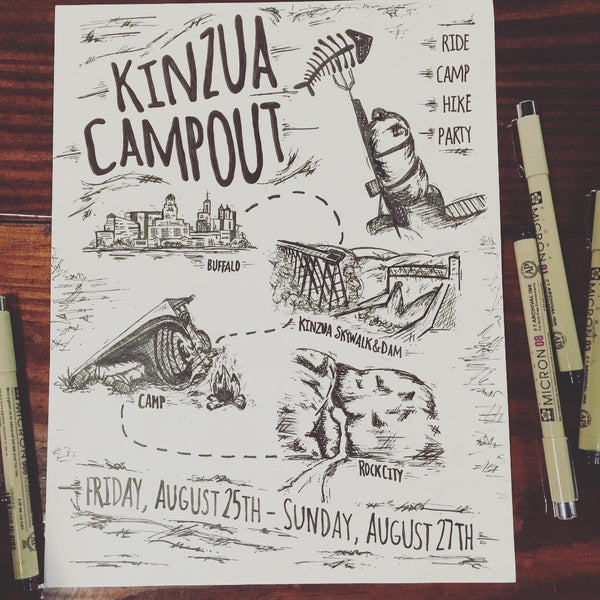 KINZUA
CAMPOUT
RIDE
CAMP
HIKE
PARTY
BUFFALO
KINZUA SKYWALK & DAM
CAMP
ROCK CITY
FRIDAY, AUGUST 25TH - SUNDAY, AUGUST 27TH
MICRON 08
ARCHIVAL INK
MICRON